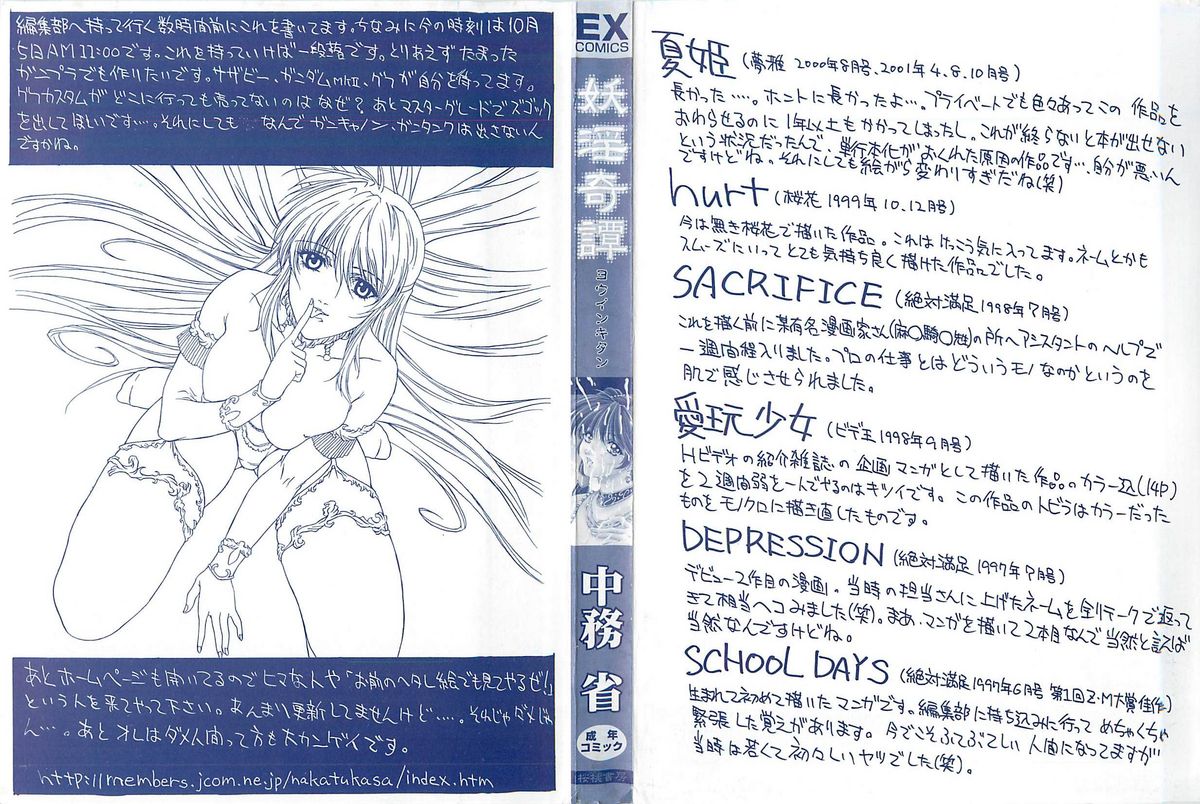 編集部へ持って行く数時間前にこれを書いてます。ちなみに今の時刻は10月
5日AM11:00です。これを持っていけば一段落です。とりあえずたまった
ガンプラでも作りたいです。サザビー、ガンダムMkII、グフが自分を待ってます。
グフカスタムがどこに行っても売ってないのはなぜ?あとマスターグレードでズゴック
を出してほしいです…。それにしてもなんでガンキャノン・ガンタンクは出さないん
ですかね。
あとホームページも開いてるのでヒマな人や「お前のヘタレ絵でも見てやるぜ!」
という人を来てやって下さい。あんまり更新してませんけど…。それじゃダメじゃ
ん…。あとオレはダメ人間って方も大カンゲイです。
http://members.jcom.ne.jp/nakatukasa/index.htm
EX
COMICS
妖淫奇譚
ヨウインキタン
中務省
成年
コミック
桜桃書房
夏姫(夢雅 2000年8月号、2001年4.8.10月号)
長かった…。ホントに長かったよ…。プライベートでも色々あってこの作品を
おわらせるのに1年以上もかかってしまったし。これが終らないと本が出せない
という状況だったんで、単行本化がおくれた原因の作品です…自分が悪いん
ですけどね。それにしても絵がら変わりすぎだね(笑)
hurt(桜花1999年10.12月号)
今は無き桜花で描いた作品。これはけっこう気に入ってます。ネームとかも
スムーズにいってとても気持ち良く描けた作品でした。
SACRIFICE(絶対満足1998年7月号)
これを描く前に某有名漫画家さん(麻〇騎〇妃)の所へアシスタントのヘルプで
一週間程入りました。プロの仕事とはどういうモノなのかというのを
肌で感じさせられました。
愛玩少女(ビデ王1998年9月号)
Hビデオの紹介雑誌の企画マンガとして描いた作品のカラー込(14P)
を2週間弱を一人でやるのはキツイです。この作品のトビラはカラーだった
ものをモノクロに描き直したものです。
DEPRESSION(絶対満足1997年7月号)
デビュー2作目の漫画。当時の担当さんに上げたネームを全リテークで返って
きて相当ヘコみました(笑)。まあ、マンガを描いて2本目なんで当然と言えば
当然なんですけどね。
SCHOOL DAYS(絶対満足1997年6月号 第1回Z・M大賞佳作)
生まれて初めて描いたマンガです。編集部に持ち込みに行ってめちゃくちゃ
緊張した覚えがあります。今でこそふてぶてしい人間になってますが
当時は若くて初々しいヤツでした(笑)。